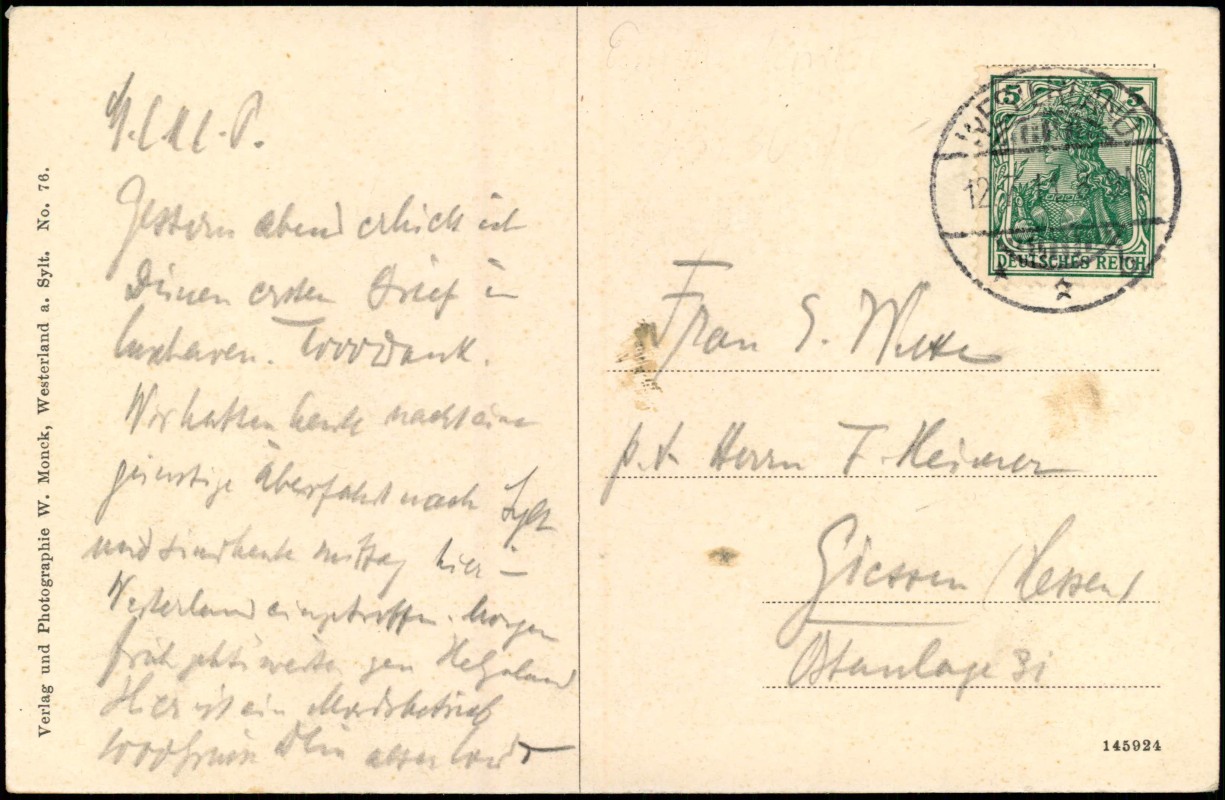 Verlag und Photographie W. Monck, Westerland a. Sylt. No. 76.
Gestern abend erhielt ich
Deinen ersten Brief in
Cuxhaven. 1000 Dank.
Wir hatten heute nacht eine
günstige Überfahrt nach Sylt
und sind heute mittag hier –
Westerland eingetroffen. Morgen
früh geht's weiter gen Helgoland
Hier ist ein Mordsbetrieb
1000
5 5
WESTERLAND
12
DEUTSCHES REICH
Frau E.
Herrn F. Heimer
Giessen (Hessen)
Ostanlage 31
145924